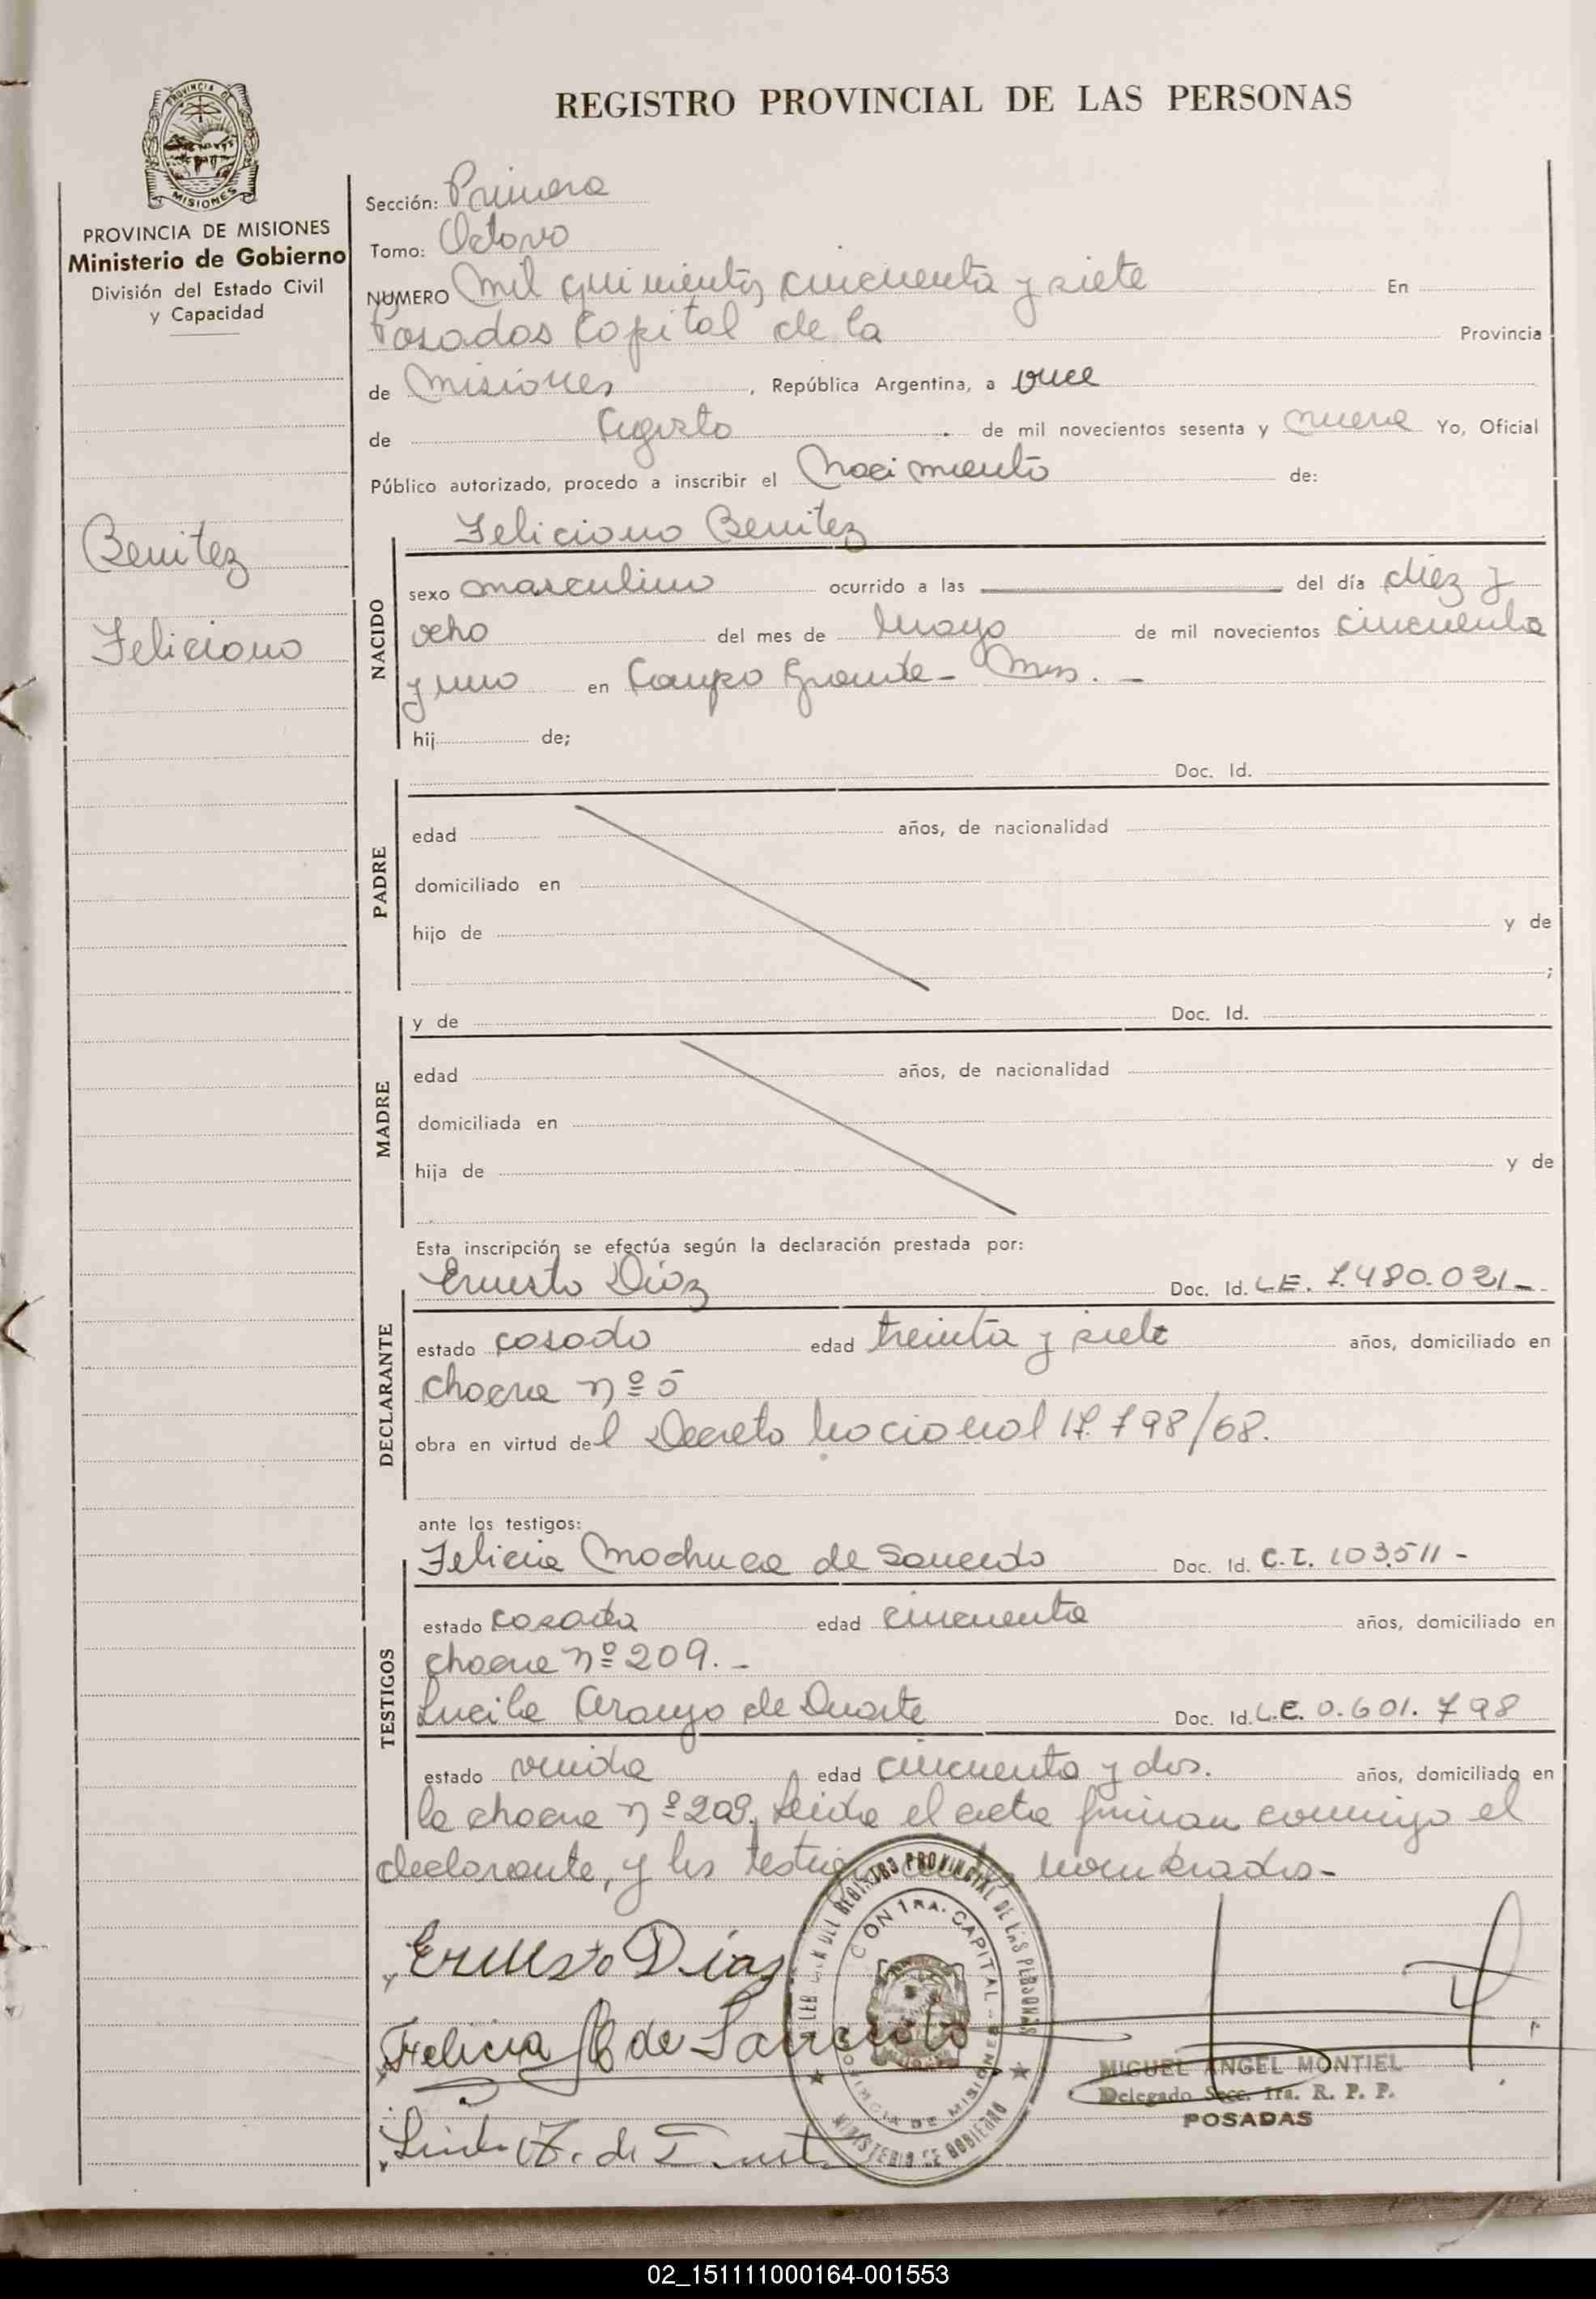 REGISTRO PROVINCIAL DE LAS PERSONAS
PROVINCIA DE
MISIONES
PROVINCIA DE MISIONES
Ministerio de Gobierno
División del Estado Civil
y Capacidad
Benitez
Feliciano
Sección: Primera
Tomo: Octavo
NUMERO Mil quinientos cincuenta y siete En
Posadas Capital de la Provincia
de Misiones, República Argentina, a once
de Agosto de mil novecientos sesenta y nueve Yo, Oficial
Público autorizado, procedo a inscribir el Nacimiento de:
NACIDO
Feliciano Benitez
sexo masculino ocurrido a las del día diez y
ocho del mes de Mayo de mil novecientos cincuenta
y uno en Campo Grande - Mnes. -
hij de;
PADRE
Doc. Id.
edad años, de nacionalidad
domiciliado en
hijo de y de
;
MADRE
y de Doc. Id.
edad años, de nacionalidad
domiciliada en
hija de y de
Esta inscripción se efectúa según la declaración prestada por:
DECLARANTE
Ernesto Diaz Doc. Id. L.E. 7.480.021-
estado casado edad treinta y siete años, domiciliado en
chacra nº 5
obra en virtud del Decreto Nacional 17.798/68.
ante los testigos:
TESTIGOS
Felicia Machuca de Saucedo Doc. Id. C.I. 103.511 -
estado casada edad cincuenta años, domiciliado en
chacra nº 209. -
Lucila Araujo de Duarte Doc. Id. L.C. 0.601.798
estado viuda edad cincuenta y dos. años, domiciliado en
la chacra nº 209. Leida el acta firman conmigo el
declarante, y los testigos nombrados-
Ernesto Díaz
Felicia M de Saucedo
de
REGISTRO PROVINCIAL DE LAS PERSONAS
1RA. CAPITAL
PROVINCIA DE MISIONES
MINISTERIO DE GOBIERNO
MIGUEL ANGEL MONTIEL
Delegado Secc. 1ra. R. P. P.
POSADAS
02_151111000164-001553